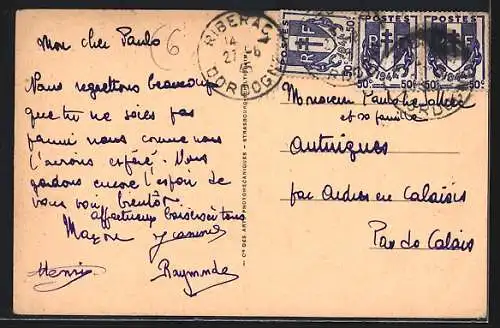 Mon cher Paulo
6
Nous regrettons beaucoup
que tu ne sois pas
parmi nous comme nous
l'avions espéré. Nous
gardons encore l'espoir de
vous voir bientôt
affectueux baisers à tous
Henri Raymonde
Cie DES ARTS PHOTOMÉCANIQUES - STRASBOURG
RIBERAC
14
27-6
DORDOGNE
POSTES 50c RF 1944
POSTES 50c RF 1944
POSTES 50c RF 1944
Monsieur Paul
et sa famille
Autingues
par Ardres en Calaisis
Pas de Calais